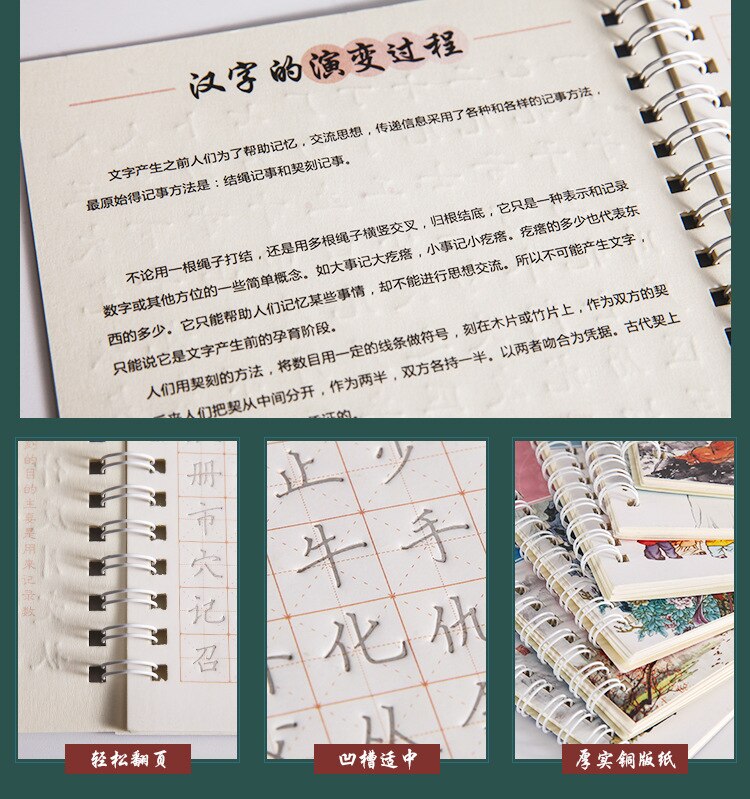 汉字的演变过程
文字产生之前人们为了帮助记忆，交流思想，传递信息采用了各种和各样的记事方法，
最原始得记事方法是：结绳记事和契刻记事。
不论用一根绳子打结，还是用多根绳子横竖交叉，归根结底，它只是一种表示和记录
数字或其他方位的一些简单概念。如大事记大疙瘩，小事记小疙瘩。疙瘩的多少也代表东
西的多少。它只能帮助人们记忆某些事情，却不能进行思想交流。所以不可能产生文字，
只能说它是文字产生前的孕育阶段。
人们用契刻的方法，将数目用一定的线条做符号，刻在木片或竹片上，作为双方的契
来人们把契从中间分开，作为两半，双方各持一半。以两者吻合为凭据。古代契上
的目的主要是用来记录数
册
市
穴
记
召
止少
牛手
化仇
轻松翻页
凹槽适中
厚实铜版纸